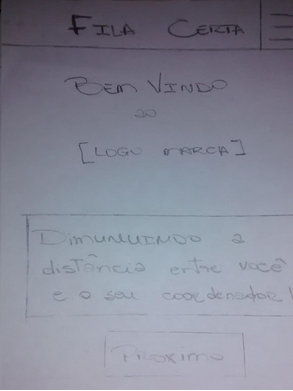 FILA CERTA
BEM VINDO
ao
[LOGO MARCA]
DIMUNUINDO a
distância entre você
e o seu coordenador!
Próximo